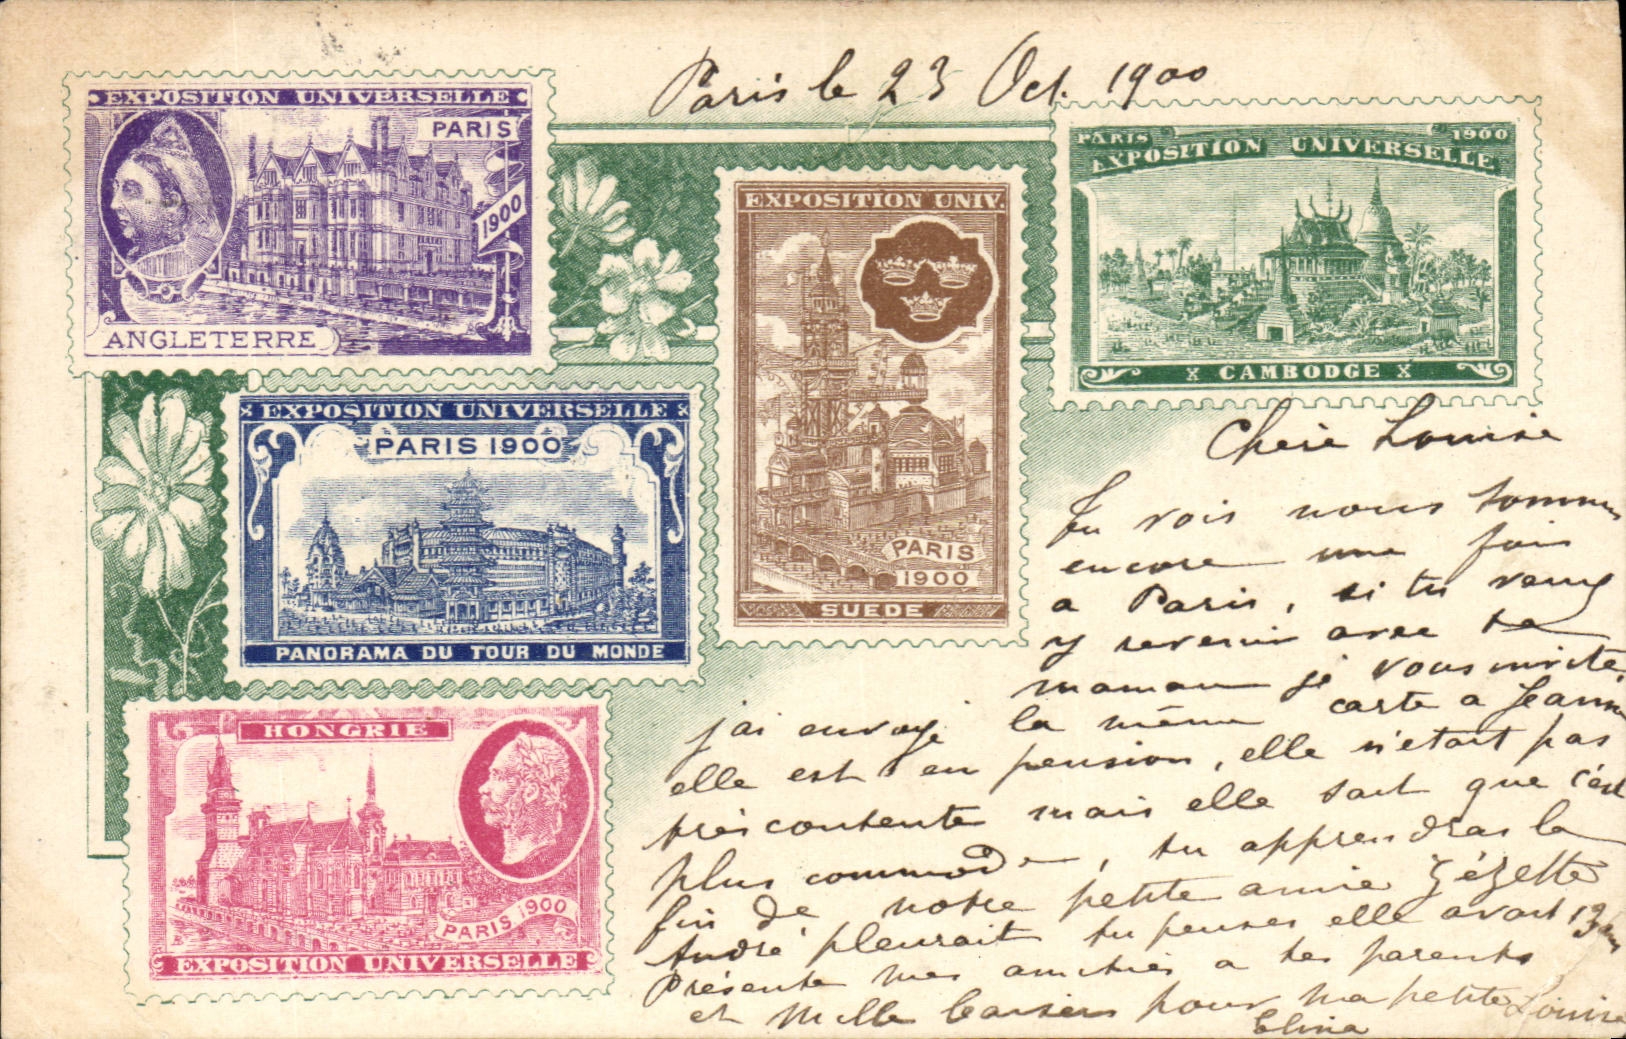 Paris le 23 Oct. 1900
EXPOSITION UNIVERSELLE
PARIS
1900
ANGLETERRE
EXPOSITION UNIVERSELLE
PARIS 1900
PANORAMA DU TOUR DU MONDE
HONGRIE
PARIS 1900
EXPOSITION UNIVERSELLE
EXPOSITION UNIV.
PARIS
1900
SUEDE
PARIS 1900
EXPOSITION UNIVERSELLE
X CAMBODGE X
Chère Louise
Tu vois nous sommes
encore une fois
a Paris, si tu veux
y revenir avec ta
maman je vous invite,
j'ai envoyé la même carte a Jeanne
elle est en pension, elle n'etait pas
très contente mais elle sait que c'est
plus commode, tu apprendras la
fin de notre petite amie Zézette
André pleurait tu penses elle avait 13 ans
Présente mes amitiés a tes parents
et Mille baisers pour ma petite Louise
Elina